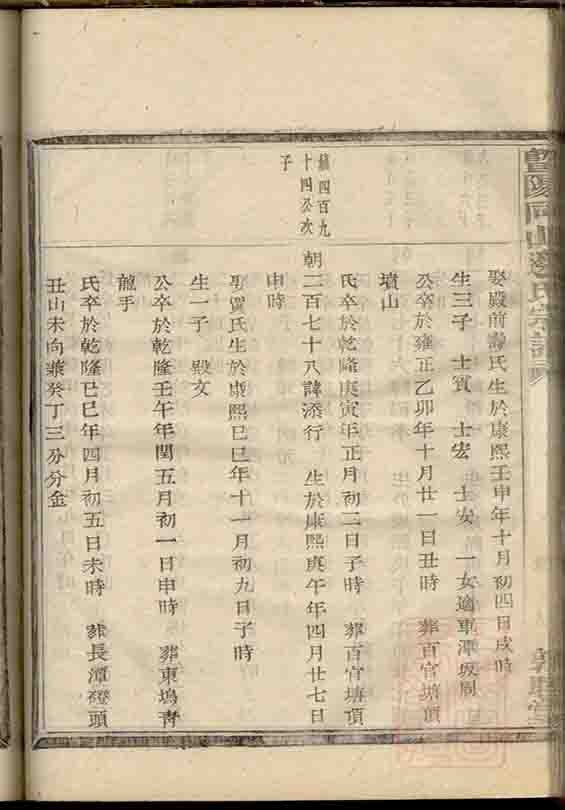 暨陽同山邊氏宗譜
娶殿前壽氏生於康熙壬申年十月初四日戌時
生三子 士賓 士宏 士安 一女適東潭坂周
公卒於雍正乙卯年十月廿一日丑時 葬百官塘頂
墳山
氏卒於乾隆庚寅年正月初二日子時 葬百官塘頂
鎮四百九
十四公次
子
朝二百七十八諱添行 生於康熙庚午年四月廿七日
申時
娶賈氏生於康熙己巳年十一月初九日子時
生一子 殿文
公卒於乾隆壬午年閏五月初一日申時 葬東塢青
龍手
氏卒於乾隆己巳年四月初五日未時 葬長潭磴頭
丑山未向兼癸丁三分分金